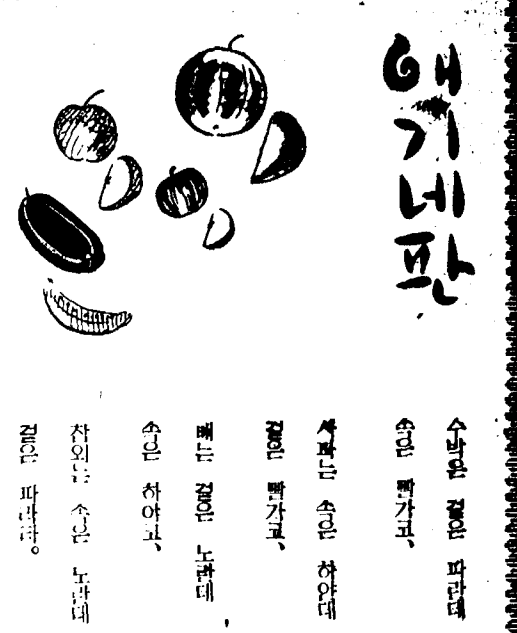 애기네판
수박은 겉은 파란데
속은 빨가코,
사과는 속은 하얀데
겉은 빨가코,
배는 겉은 노란데
속은 하야코,
참외는 속은 노란데
겉은 파라타。